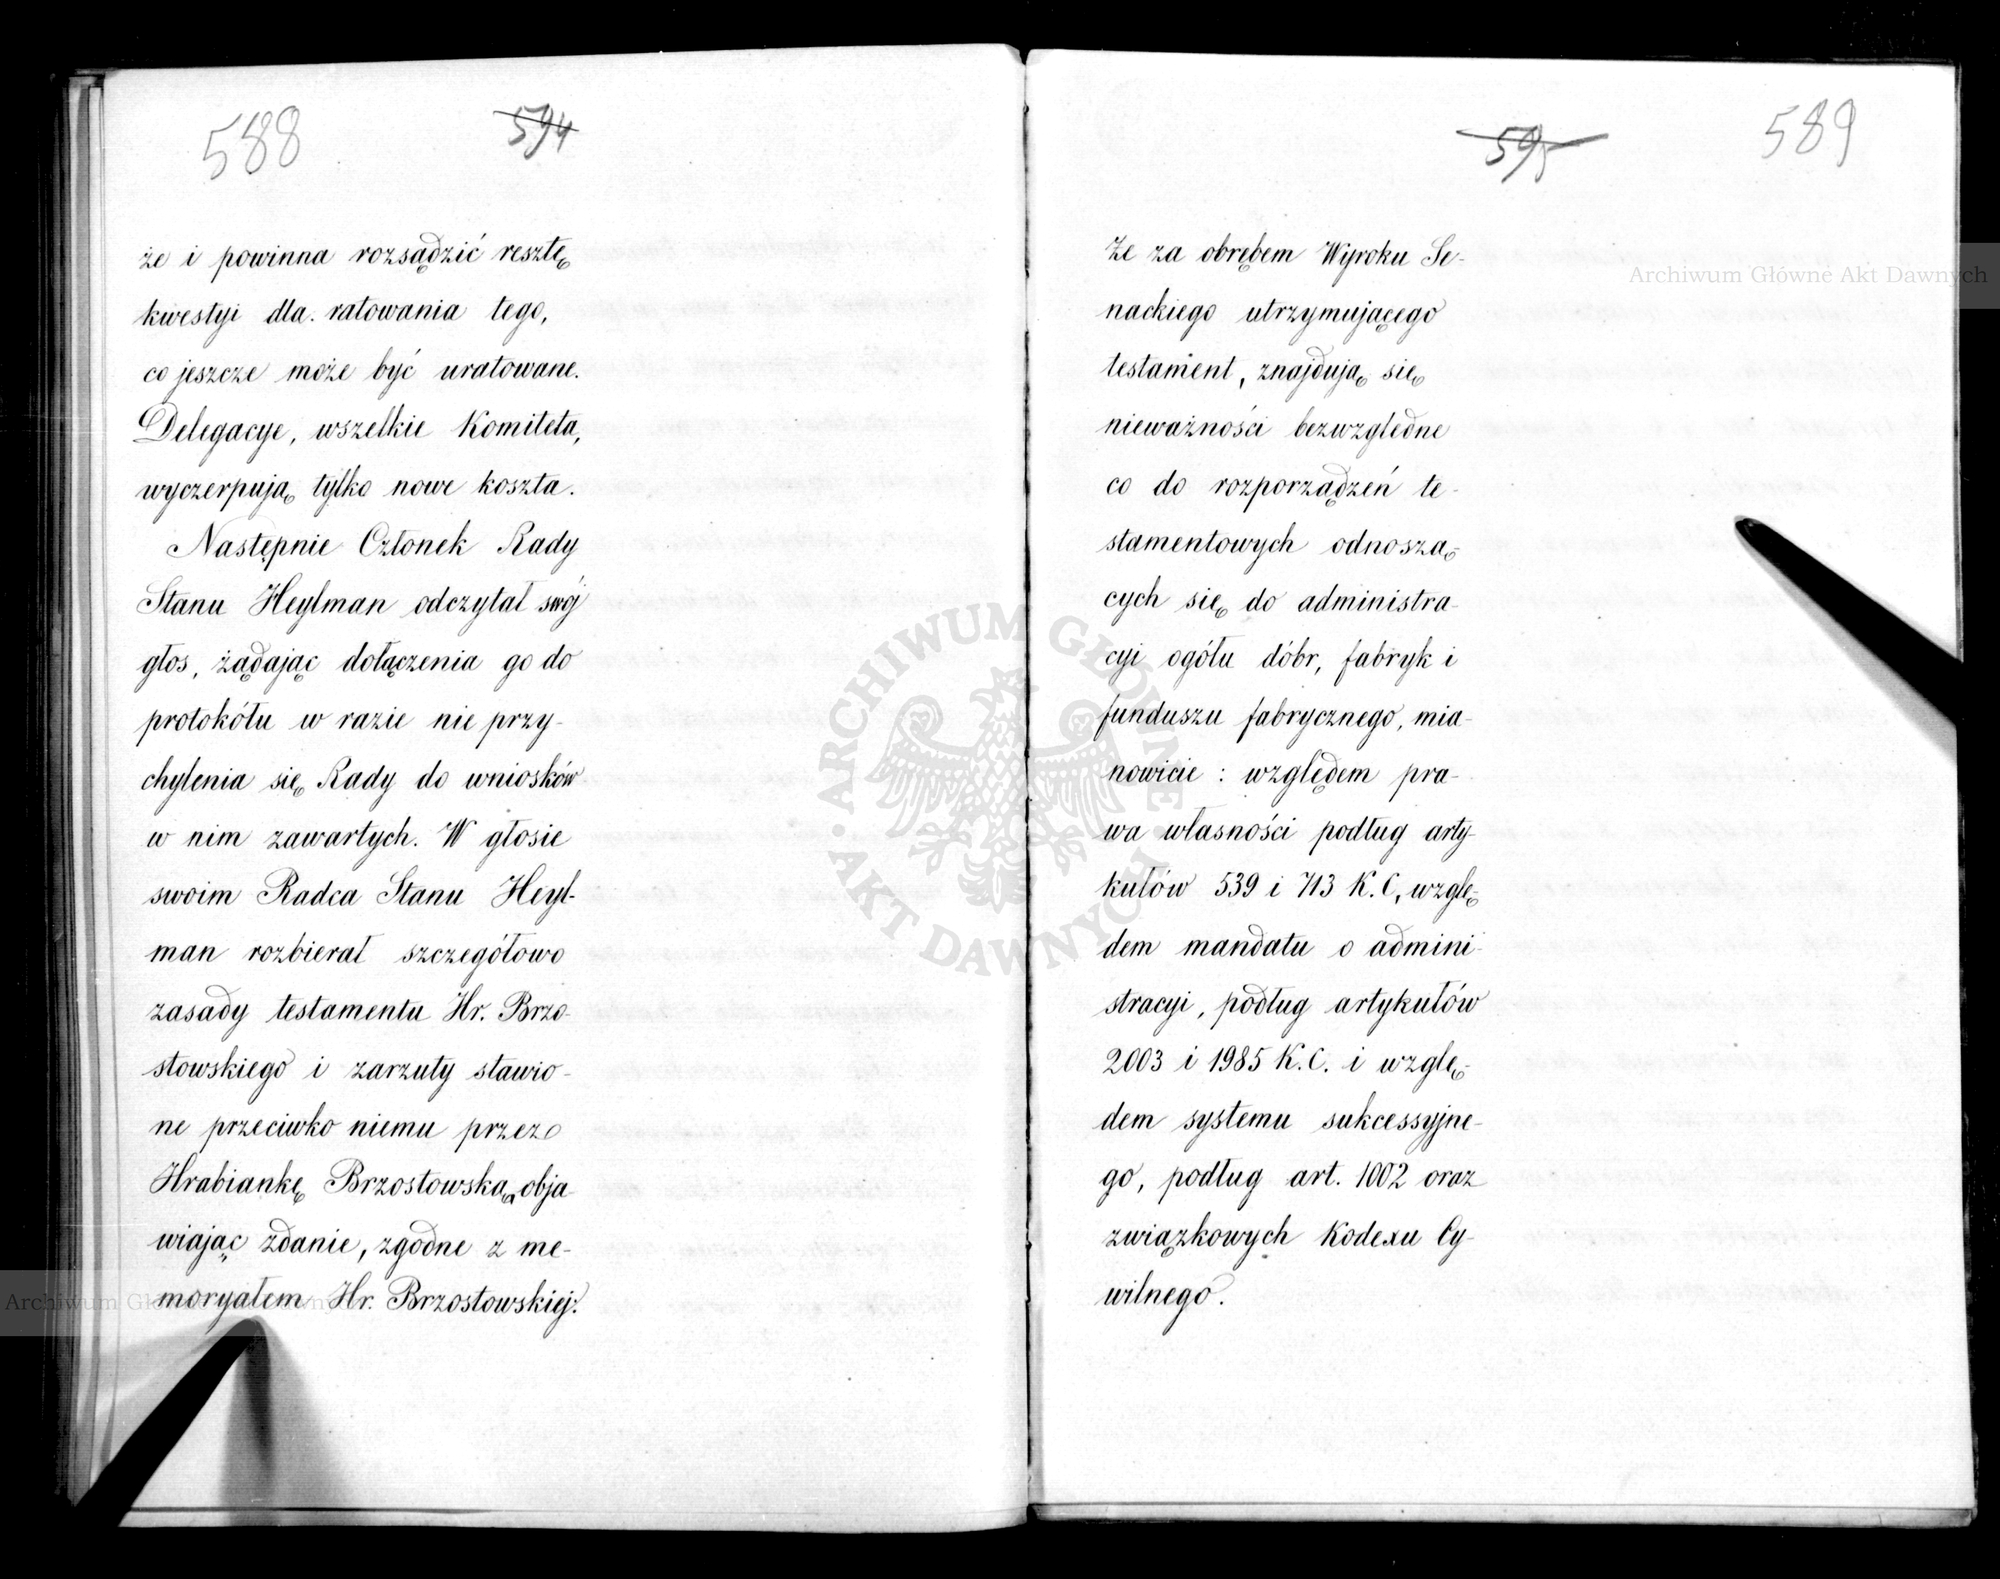 588 594
że i powinna rozsądzić resztę
kwestyi dla ratowania tego,
co jeszcze może być uratowane.
Delegacye, wszelkie Komiteta,
wyczerpują tylko nowe koszta.
Następnie Członek Rady
Stanu Heylman odczytał swój
głos, żądając dołączenia go do
protokółu w razie nie przy-
chylenia się Rady do wniosków
w nim zawartych. W głosie
swoim Radca Stanu Heyl-
man rozbierał szczegółowo
zasady testamentu Hr. Brzo-
stowskiego i zarzuty stawio-
ne przeciwko niemu przez
Hrabiankę Brzostowską, obja-
wiając zdanie, zgodne z me-
moryałem Hr. Brzostowskiej:
595 589
Że za obrębem Wyroku Se-
nackiego utrzymującego
testament, znajdują się
nieważności bezwzględne
co do rozporządzeń te-
stamentowych odnoszą-
cych się do administra-
cyi ogółu dóbr, fabryk i
funduszu fabrycznego, mia-
nowicie: względem pra-
wa własności podług arty-
kułów 539 i 713 K. C, wzglę-
dem mandatu o admini-
stracyi, podług artykułów
2003 i 1985 K. C. i wzglę-
dem systemu sukcessyjne-
go, podług art. 1002 oraz
związkowych Kodexu Cy-
wilnego.
Archiwum Główne Akt Dawnych
ARCHIWUM GŁÓWNE AKT DAWNYCH